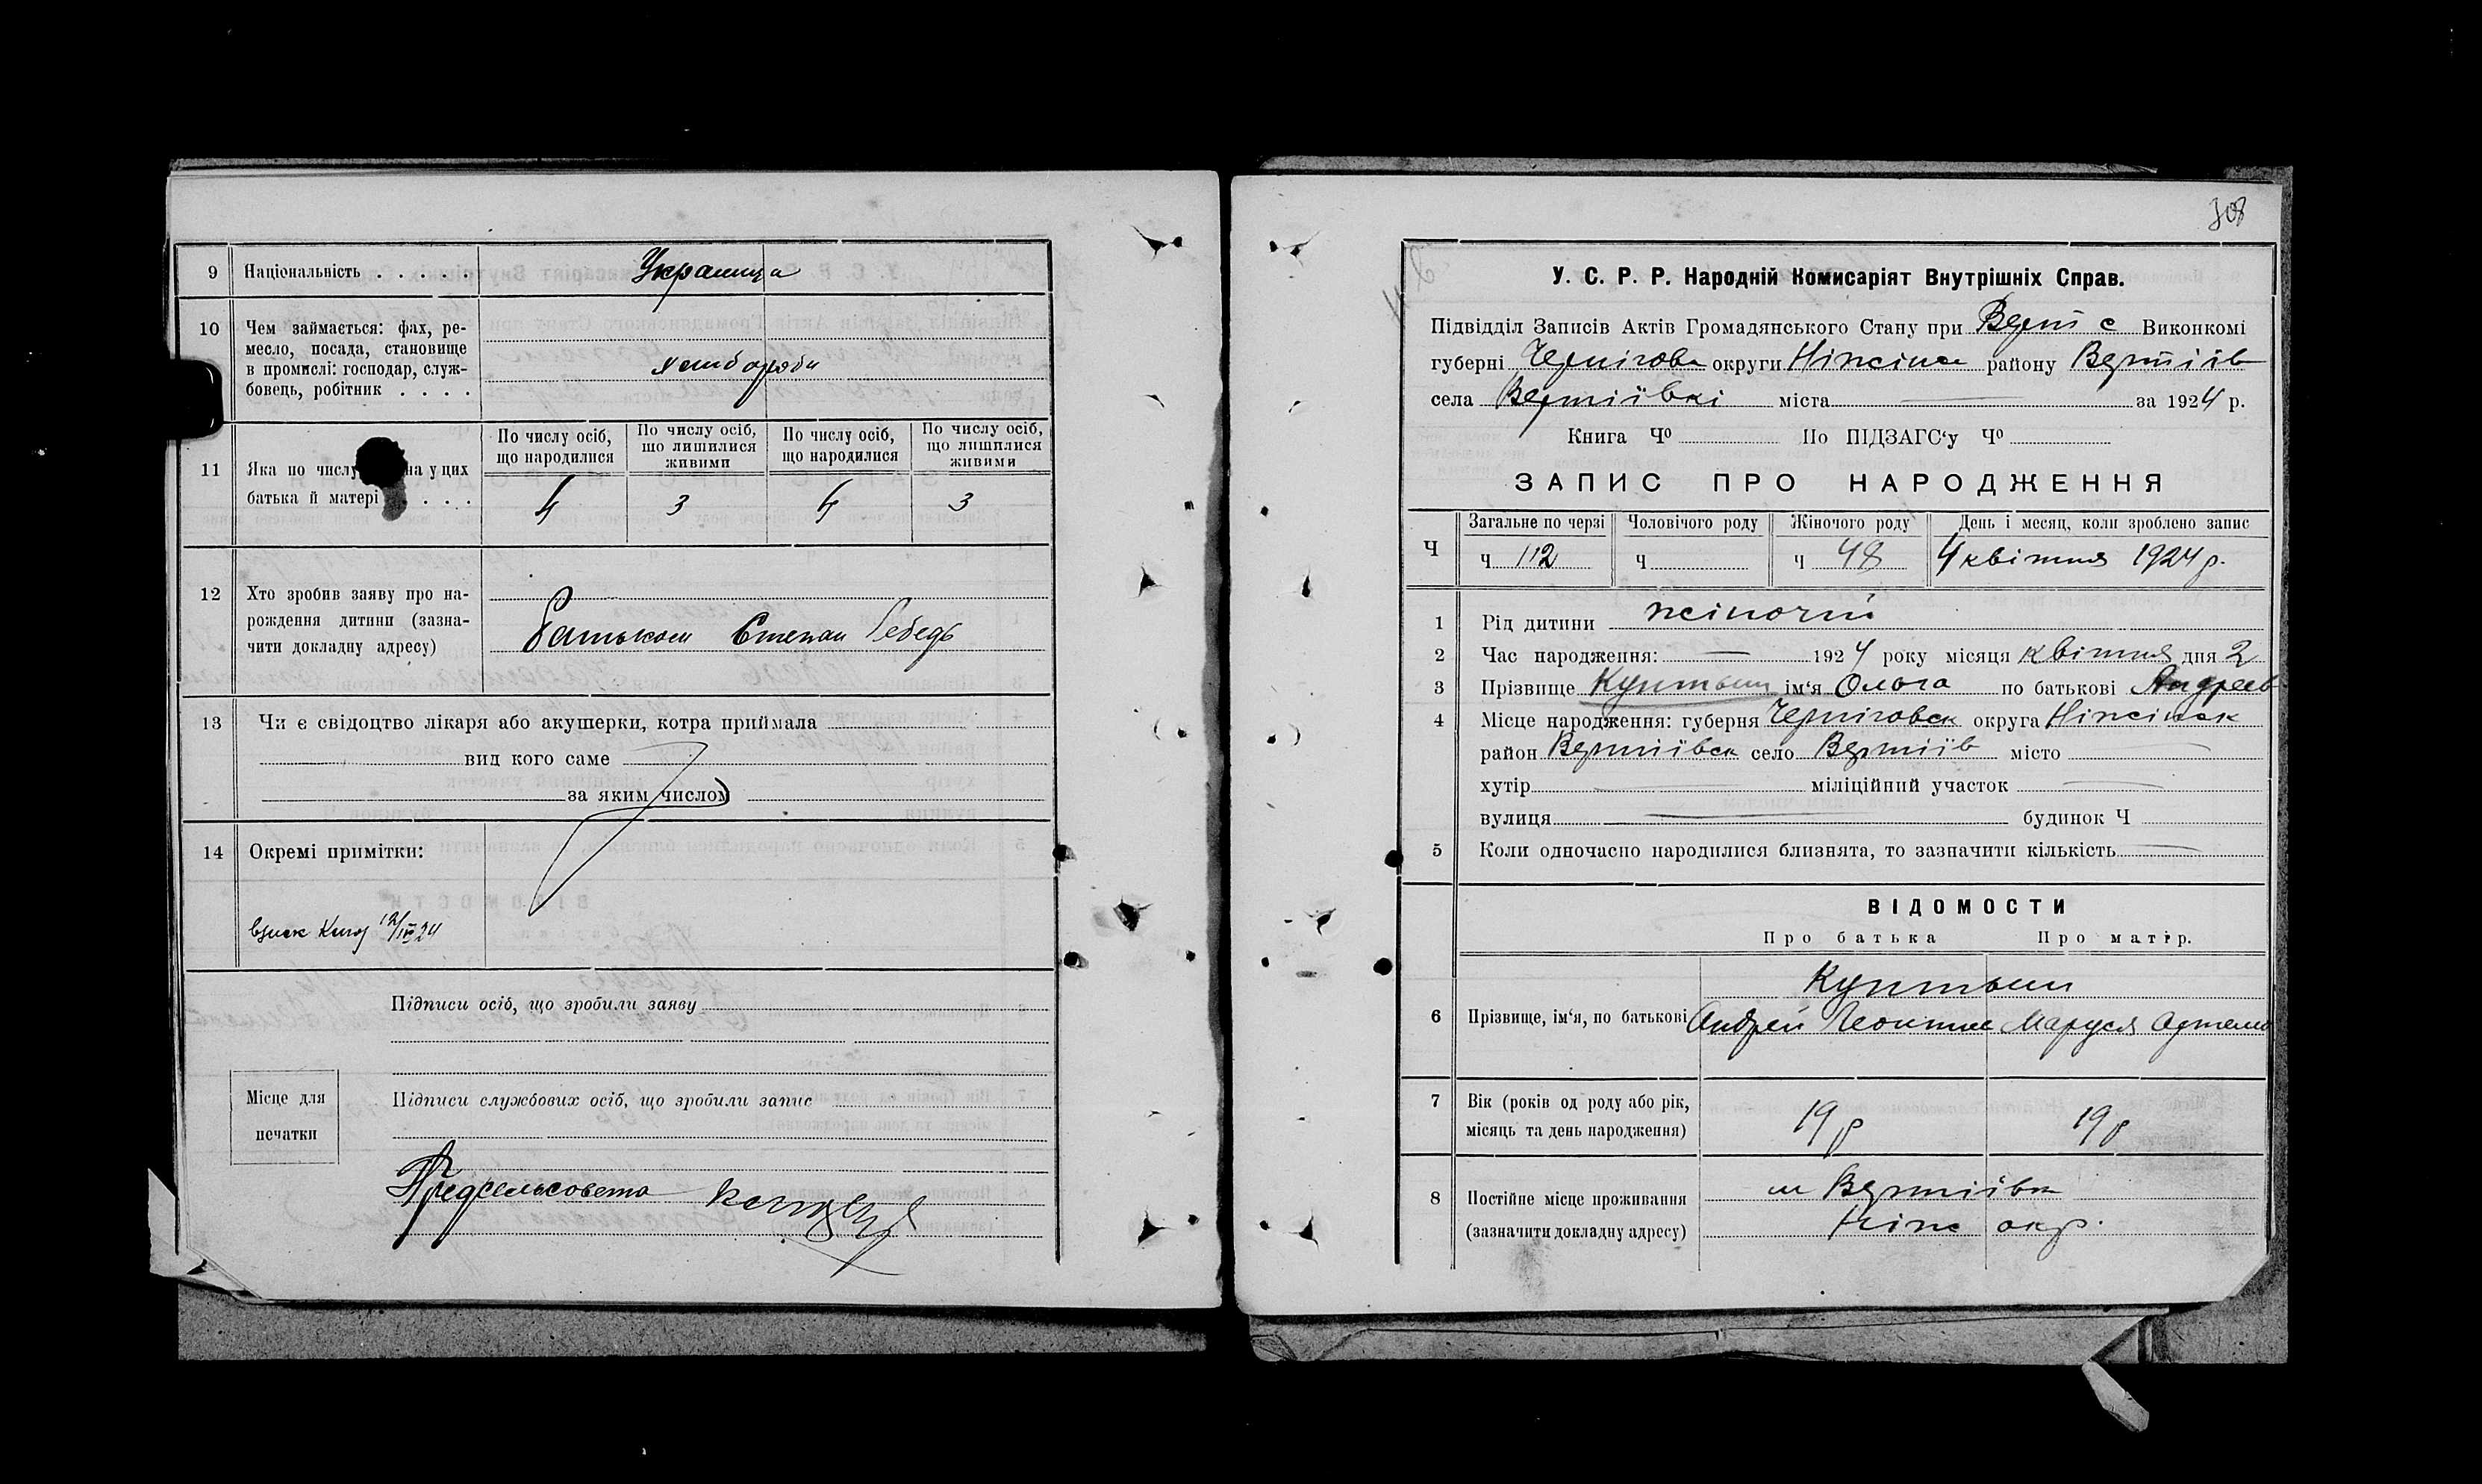 9 Національність . . . . .
Украинца
10 Чем займається: фах, ре-
месло, посада, становище
в промислі: господар, служ-
бовець, робітник . . . .
хлибороби
11 Яка по числу на у цих
батька й матері . . . .
По числу осіб, що народилися
По числу осіб, що лишилися живими
По числу осіб, що народилися
По числу осіб, що лишилися живими
4 3 4 3
12 Хто зробив заяву про на-
рождення дитини (зазна-
чити докладну адресу)
Батьком Степан Лебедь
13 Чи є свідоцтво лікаря або акушерки, котра приймала
вид кого саме
за яким числом
14 Окремі примітки:
12/IV 24
Підписи осіб, що зробили заяву
Місце для
печатки
Підписи службових осіб, що зробили запис
Предсельсовета
308
У. С. Р. Р. Народній Комисаріят Внутрішніх Справ.
Підвідділ Записів Актів Громадянського Стану при Верт с Виконкомі
губерні Чернігова округи Ніжінсь району Вертіїв
села Вертіївкі міста за 1924 р.
Книга Чо По ПІДЗАГС‘у Чо
ЗАПИС ПРО НАРОДЖЕННЯ
Ч
Загальне по черзі Чоловічого роду Жіночого роду День і месяц, коли зроблено запис
Ч 112 Ч Ч 48 4 квітня 1924 р.
1 Рід дитини жіночій
2 Час народження: — 1924 року місяця квітня дня 2
3 Прізвище ім‘я Ольга по батькові Андреев
4 Місце народження: губерня Черніговск округа Ніжінск
район Вертіївск село Вертіїв місто
хутір міліційний участок
вулиця будинок Ч
5 Коли одночасно народилися близнята, то зазначити кількість
ВІДОМОСТИ
Про батька Про матір.
6 Прізвище, ім‘я, по батькові
Андрей Маруся
7 Вік (років од роду або рік,
місяць та день народження)
19 р 19 р
8 Постійне місце проживання
(зазначити докладну адресу)
м Вертіївка
Ніж окр.